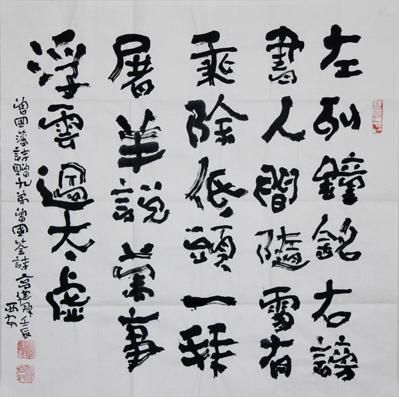 左列鐘銘右謗
書人間隨處有
乘除低頭一拜
屠羊說萬事
浮雲過太虛
曾國藩詩贈九弟曾國荃詩高建群壬辰
西安